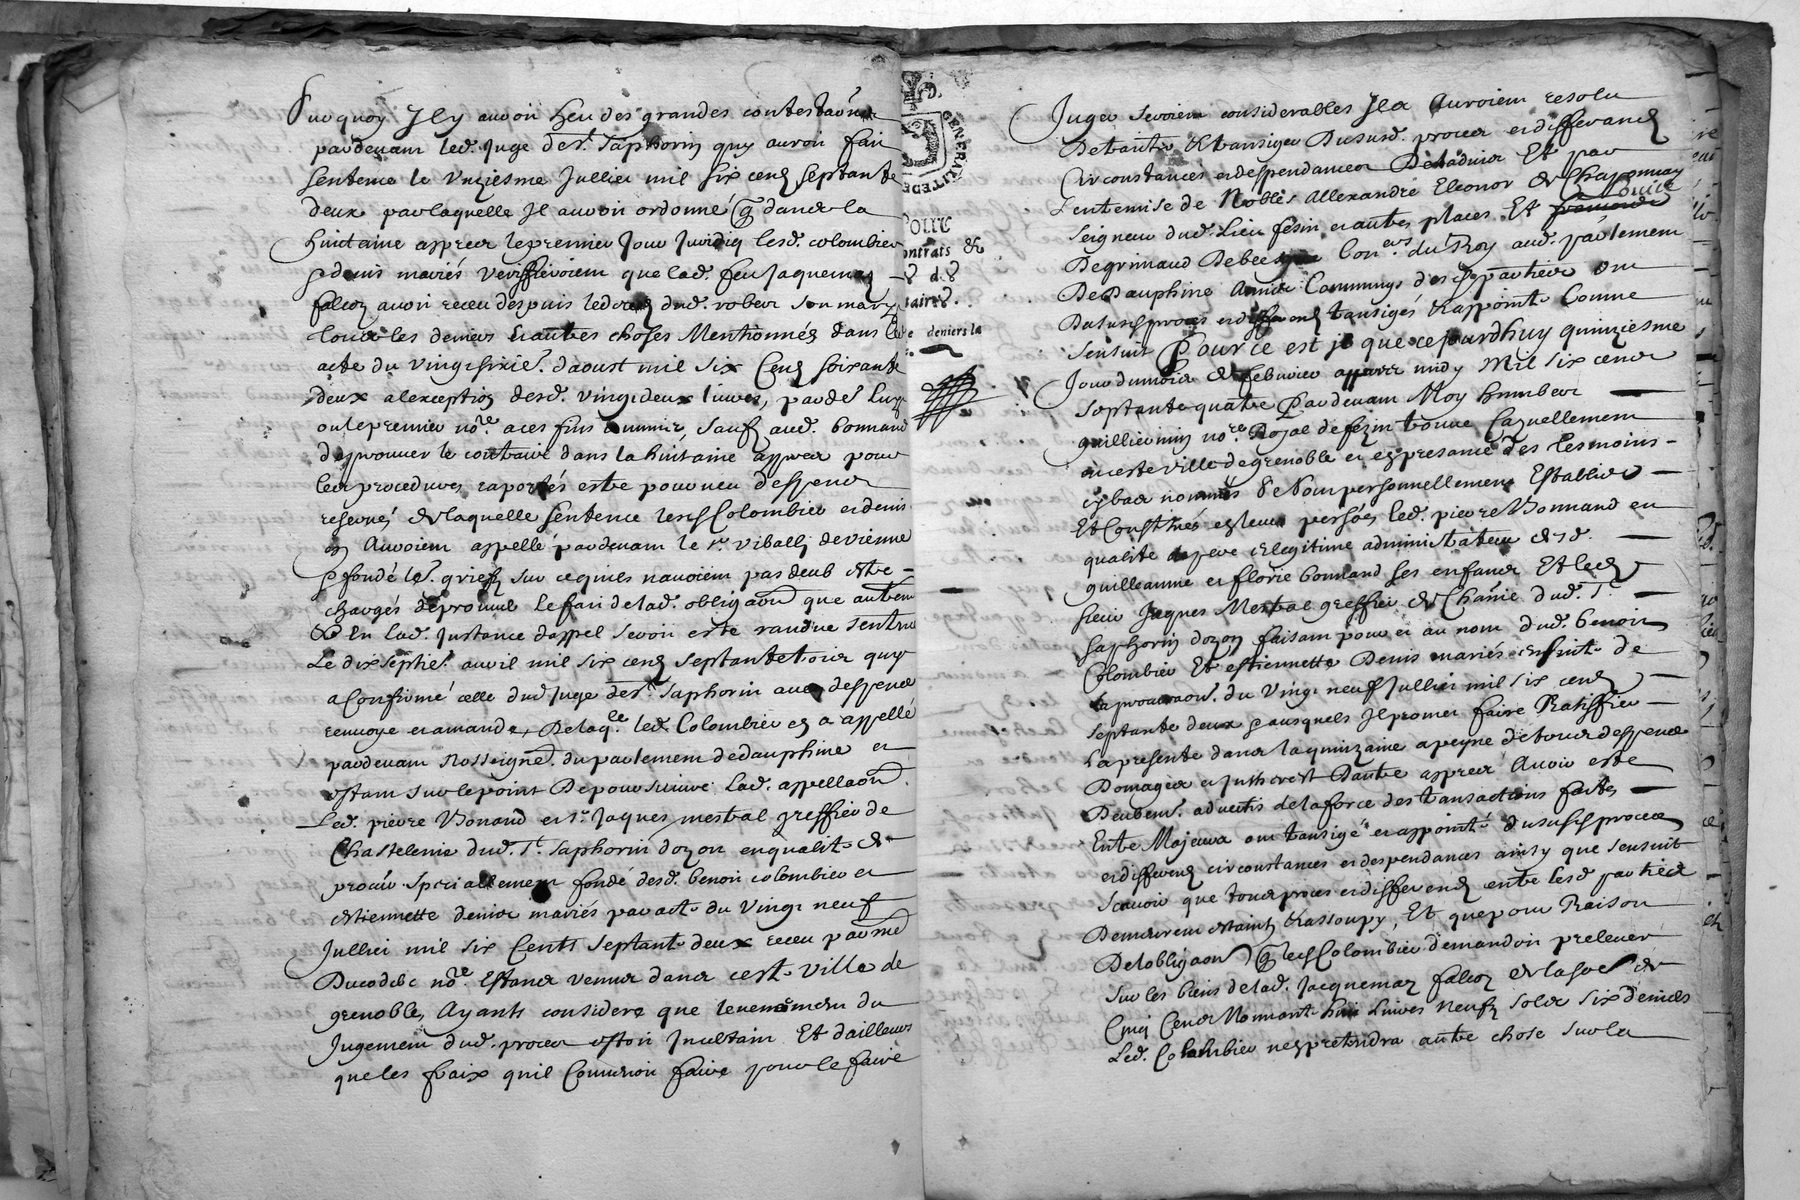 Surquoy Il y auoit heu des grandes contestaõns
pardeuant led. Juge de St. Saphorin quy auroit fait
sentence le Vnziesme Juillet mil six cens septante
deux par laquelle Il auroit ordonné q̃ dans la
huictaine appres le premier Jour Juridiq lesd. colombier
& denis mariés veriffieroient que lad. feu Jaquemaz
falcoz auoit receu despuis le deces dud. robert son mary
tous les deniers et autres choses Mentionnés dans l
acte du vingt sixie. d'aoust mil six Cens soixante
deux a l'exception desd. vingt deux liures, par de
ou le premier nore. a ces fins commis, sauf aud. bonnand
d'approuuer le contraire dans la huictaine appres pour
les procedures raportés estre pourueu despens
reserués de laquelle sentence lesd Colombier et denis
en Auroient appellé pardeuant le Sr. viballi de vienne
& fondé les. griefs sur ce qu'ils n'auoient pas deub estre
chargés de prouuer le fait de lad. obligaõn que autrem
& En lad. Instance d'appel seroit esté randue sentence
Le dix septie. auril mil six cens septante trois quy
a Confirmé celle dud Juge de St. Saphorin auec despens
renuoye et amande, De laqlle. led. Colombier en a appellé
pardeuant Nosseignrs. du parlement de dauphine et
estant sur le point De poursuiure lad. appellaõn.
Led. pierre Bonand et Sr. Jaques mestral greffier de
Chastelenie dud. St. Saphorin dozon en qualité de
procur speciallement fondé desd. benoit colombier et
estiennette denis mariés par acte du vingt neuf
Juillet mil six Cents septante deux receu par me
Ducodebc nore. Estans venus dans ceste ville de
grenoble, Ayants consideré que leuenement du
Jugement dud. proces estoit Incertain Et d'ailleurs
que les fraix quil Conuenoit faire pour le faire
GENERALITE DE
POUR
ontrats &
aires.
deniers la
Juger seroient considerables Ils Auroient resolu
De traiter Et transiger Du susd. proces et differands
Circonstances et despendances De l'aduis Et par
L'entremise de Nobles Allexandre Eleonor de Chaponnay
Seigneur dud. Lieu fesin et autres places Et
De grimaud De bees Coners. du Roy aud. parlement
De Dauphine Amis Communs desd parties ont
Du susd proces et differends transigés & appointe Comme
sensuit Pour ce est jl que ce jourdhuy quinziesme
Jour du mois de feburier appres midy Mil six cens
septante quatre Pardeuant Moy humbert
guillermin nore Royal de fezin treuue Casuellement
en ceste ville de grenoble et en presance des tesmoins
cy bas nommés se sont personnellement Establis
Et Constitués en leurs persões led. pierre Bonnand en
qualité de pere et legitime administrateur de sd.
guilleaume et florie bonnand ses enfans Et led
sieur Jaques Mestral greffier de Chãnie dud. St.
saphorin dozon faisant pour et au nom dud. benoit
Colombier Et estiennette Denis mariés ensuite de
la procuraõn. du vingt neuf Juillet mil six cens
septante deux & ausquels Il promet faire Ratiffier
la presente dans la quinzaine a peyne de tous despens
Domages et Inthérest Dautre appres Auoir esté
Deubemt. aduertis de la force des transactions faites
Entre Majeurs ont transigé et appointé du susd proces
et differends circonstances et despendances ainsy que sensuit
scauoir que tous proces et differends entre lesd parties
Demeurent estaints & assoupy, Et que pour Raison
De l'obligaõn q̃ led Colombier demandoit prelever
sur les biens de lad. Jacquemaz falcoz de la so de
Cinq Cens Nonnante huit Liures neuf sols six deniers
Led. Colombier ne pretendra autre chose sur la